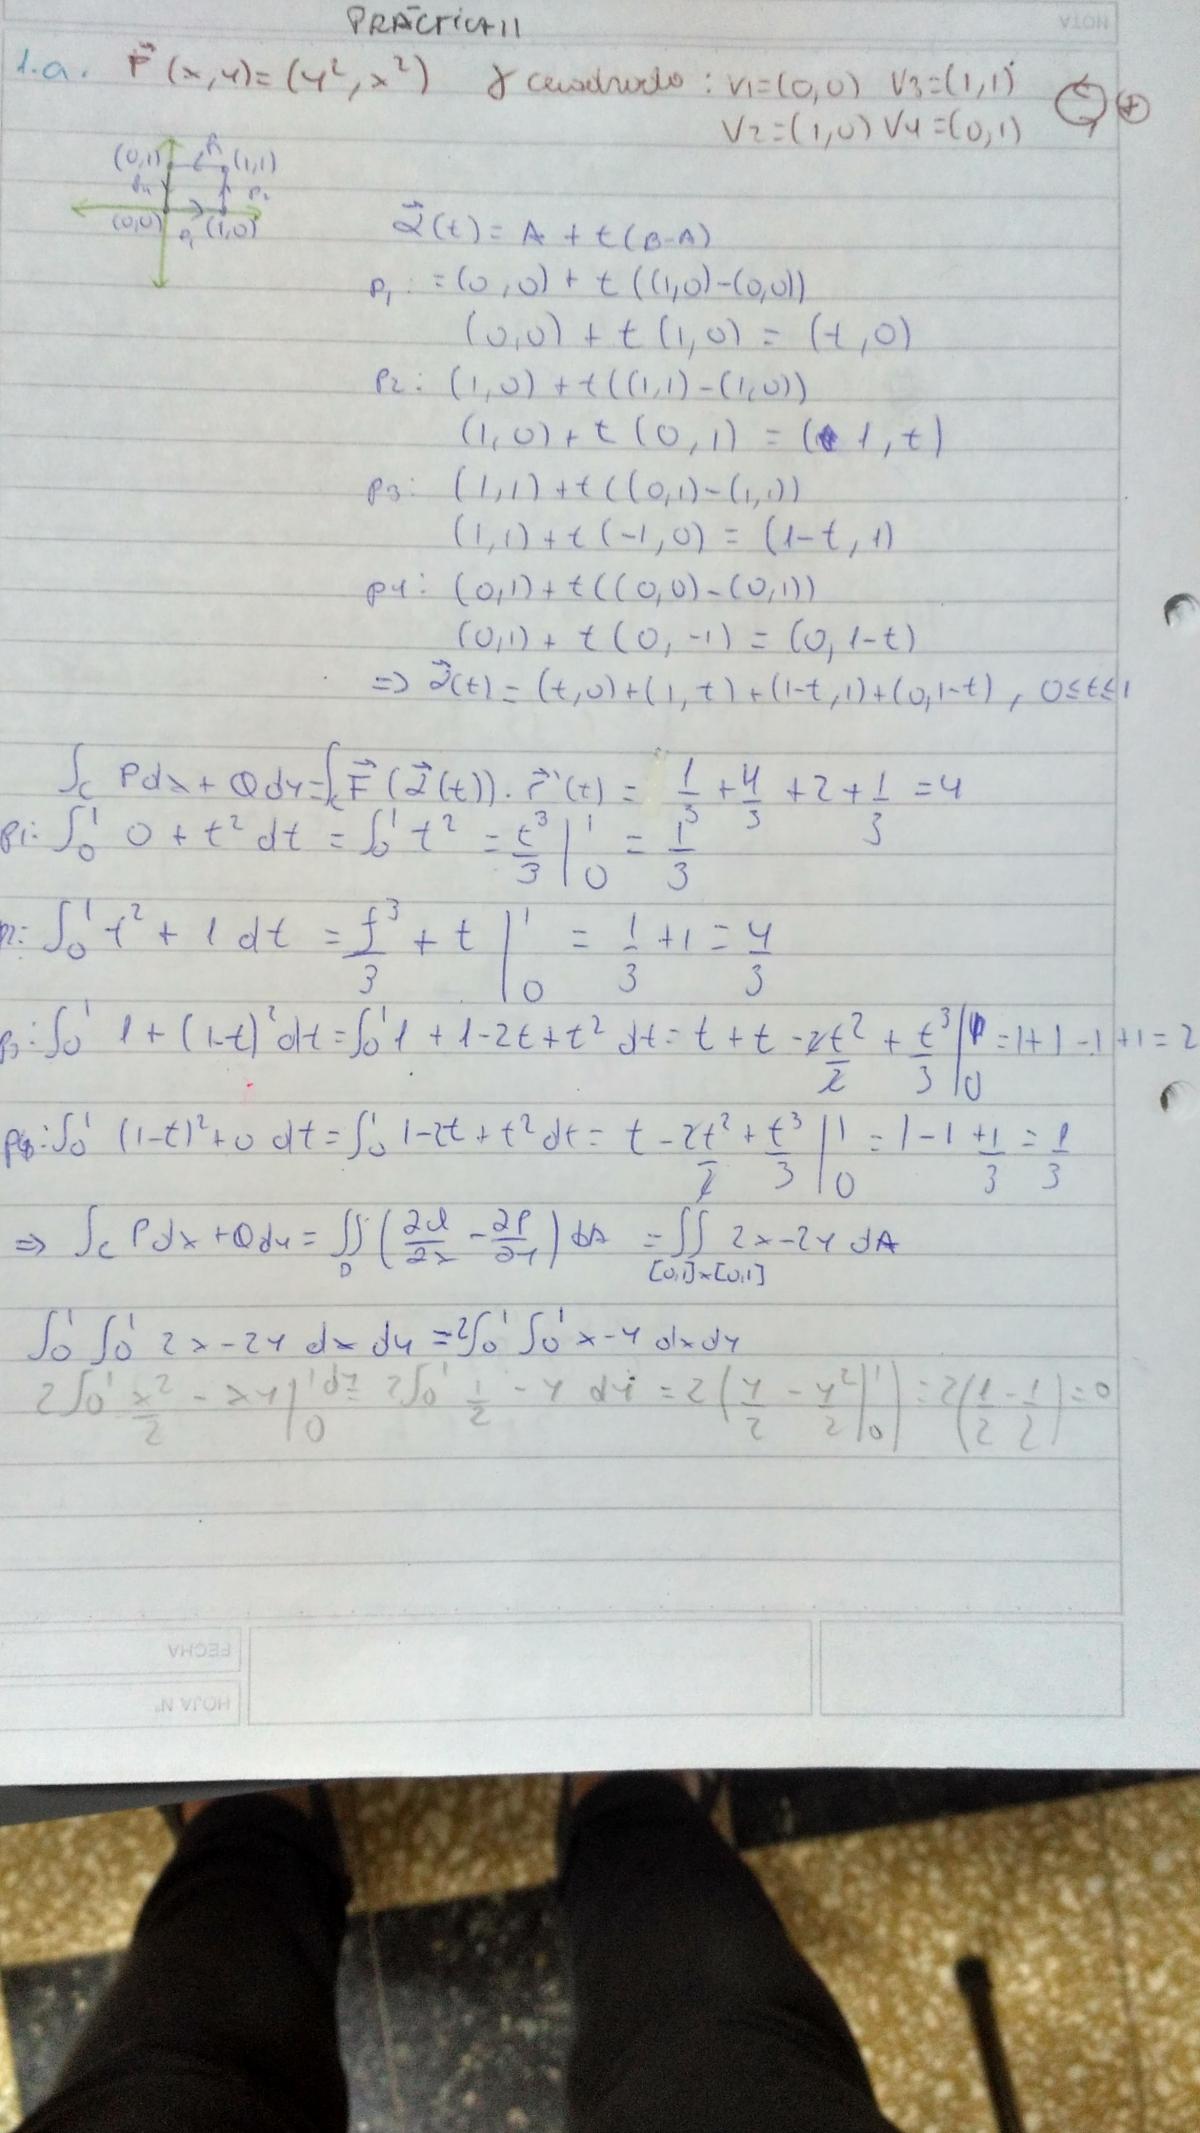 PRÁCTICA 11
NOTA
1.a. F⃗(x,y)=(y²,x²) γ cuadrado: V1=(0,0) V3=(1,1)
V2=(1,0) V4=(0,1) +
(0,1) (1,1)
P4 P2
(0,0) P1 (1,0)
α⃗(t) = A + t(B-A)
P1: = (0,0) + t((1,0)-(0,0))
(0,0) + t(1,0) = (t,0)
P2: (1,0) + t((1,1)-(1,0))
(1,0) + t(0,1) = (1,t)
P3: (1,1) + t((0,1)-(1,1))
(1,1) + t(-1,0) = (1-t,1)
P4: (0,1) + t((0,0)-(0,1))
(0,1) + t(0,-1) = (0,1-t)
=> α⃗(t) = (t,0)+(1,t)+(1-t,1)+(0,1-t), 0≤t≤1
∫c Pdx + Qdy = ∫c F⃗(α⃗(t)). r⃗'(t) = 1/3 + 4/3 + 2 + 1/3 = 4
P1: ∫0^1 0 + t² dt = ∫0^1 t² = t³/3 |0^1 = 1/3
P2: ∫0^1 t² + 1 dt = t³/3 + t |0^1 = 1/3 + 1 = 4/3
P3: ∫0^1 1 + (1-t)² dt = ∫0^1 1 + 1-2t + t² dt = t + t - 2t²/2 + t³/3 |0^1 = 1+1-1+1 = 2
P4: ∫0^1 (1-t)² + 0 dt = ∫0^1 1-2t + t² dt = t - 2t²/2 + t³/3 |0^1 = 1-1+1/3 = 1/3
=> ∫c Pdx + Qdy = ∬D (∂Q/∂x - ∂P/∂y) dA = ∬[0,1]x[0,1] 2x-2y dA
∫0^1 ∫0^1 2x-2y dx dy = 2∫0^1 ∫0^1 x-y dx dy
2∫0^1 x²/2 - xy |0^1 dy = 2∫0^1 1/2 - y dy = 2(y/2 - y²/2 |0^1) = 2(1/2 - 1/2) = 0
FECHA
HOJA Nº